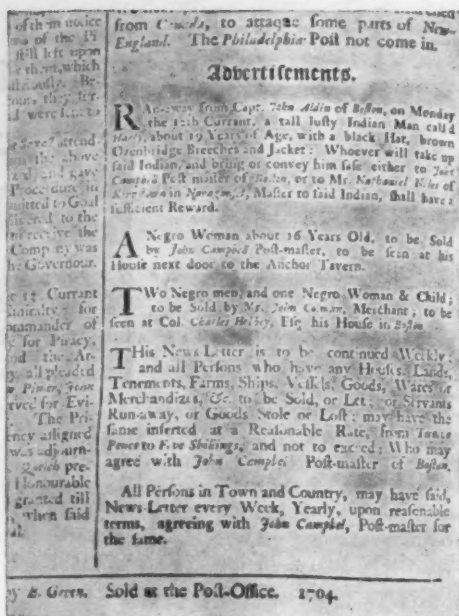 of them notice
of the Pi
still left upon
them, which
Be-
they
were
attend-
the above
and gave
Procedure in
mitted to Goal
to the
receive the
Company was
he Governour.
15 Currant
for
ommander of
for Piracy,
the Ar-
all pleaded
erved for Evi-
The Pri-
ency assigned
was adjourn-
pre-
Honourable
granted till
when said
from to attaque some parts of New-
England. The Philadelphia Post not come in.
Advertisements.
RAn-away from Capt. John Aldin of Boston, on Monday
the 12th Currant, a tall lusty Indian Man call'd
Harry, about 19 Years of Age, with a black Hat, brown
Ozenbridge Breeches and Jacket: Whoever will take up
said Indian, and bring or convey him safe either to John
Campbell Post master of Boston, or to Mr. Nathaniel Niles of
in Master to said Indian, shall have a
sufficient Reward.
A Negro Woman about 16 Years Old, to be Sold
by John Campbell Post-master, to be seen at his
House next door to the Anchor Tavern.
TWo Negro men, and one Negro Woman & Child;
to be Sold by Mr. John Merchant; to be
seen at Col. Charles Esq; his House in Boston
THis News-Letter is to be continued Weekly;
and all Persons who have any Houses, Lands,
Tenements, Farms, Ships, Vessels, Goods, Wares or
Merchandizes, &c. to be Sold, or Let; or Servants
Run-away, or Goods Stole or Lost; may have the
same inserted at a Reasonable Rate, from Twelve
Pence to Five Shillings, and not to exceed: Who may
agree with John Campbel Post-master of Boston.
All Persons in Town and Country, may have said,
News-Letter every Week, Yearly, upon reasonable
terms, agreeing with John Campbel, Post-master for
the same.
by B. Green. Sold at the Post-Office. 1704.